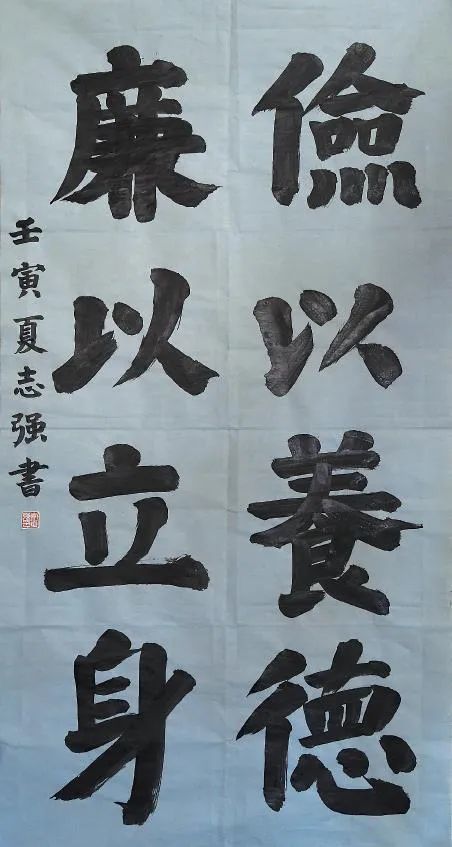 儉以養德
廉以立身
壬寅夏志强書